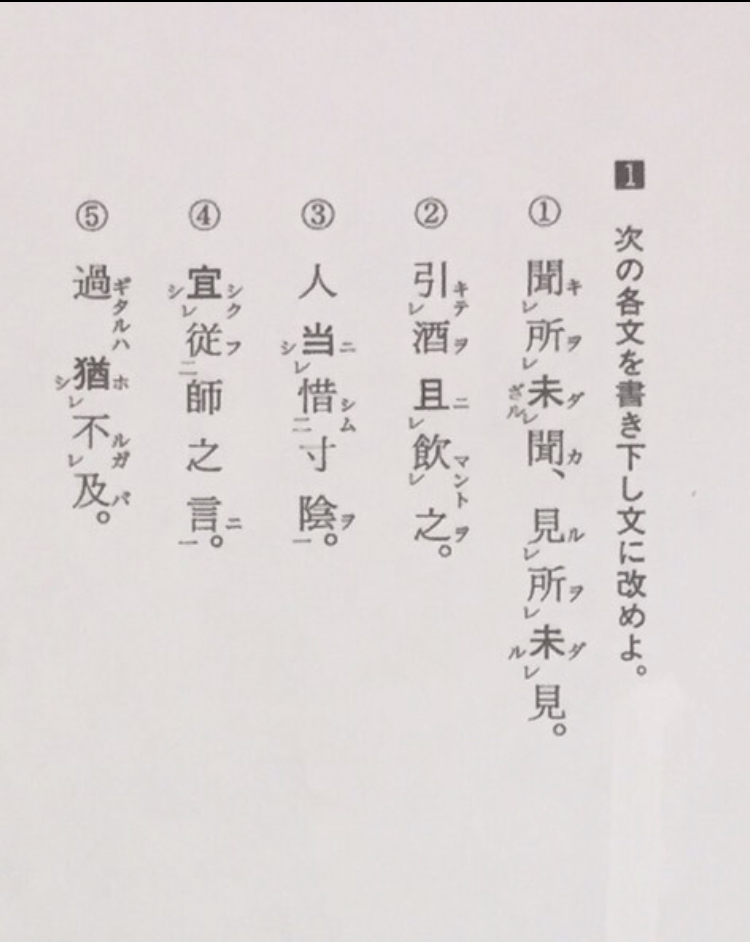 1 次の各文を書き下し文に改めよ。
① 聞キレ所ヲレ未ダざルレ聞カ、見ルレ所ヲレ未ダルレ見。
② 引キテレ酒ヲ且ニレ飲マントレ之ヲ。
③ 人当ニシレ惜シム二寸陰ヲ一。
④ 宜シクシレ従フ二師之言ニ一。
⑤ 過ギタルハ猶ホシレ不ルガレ及バ。